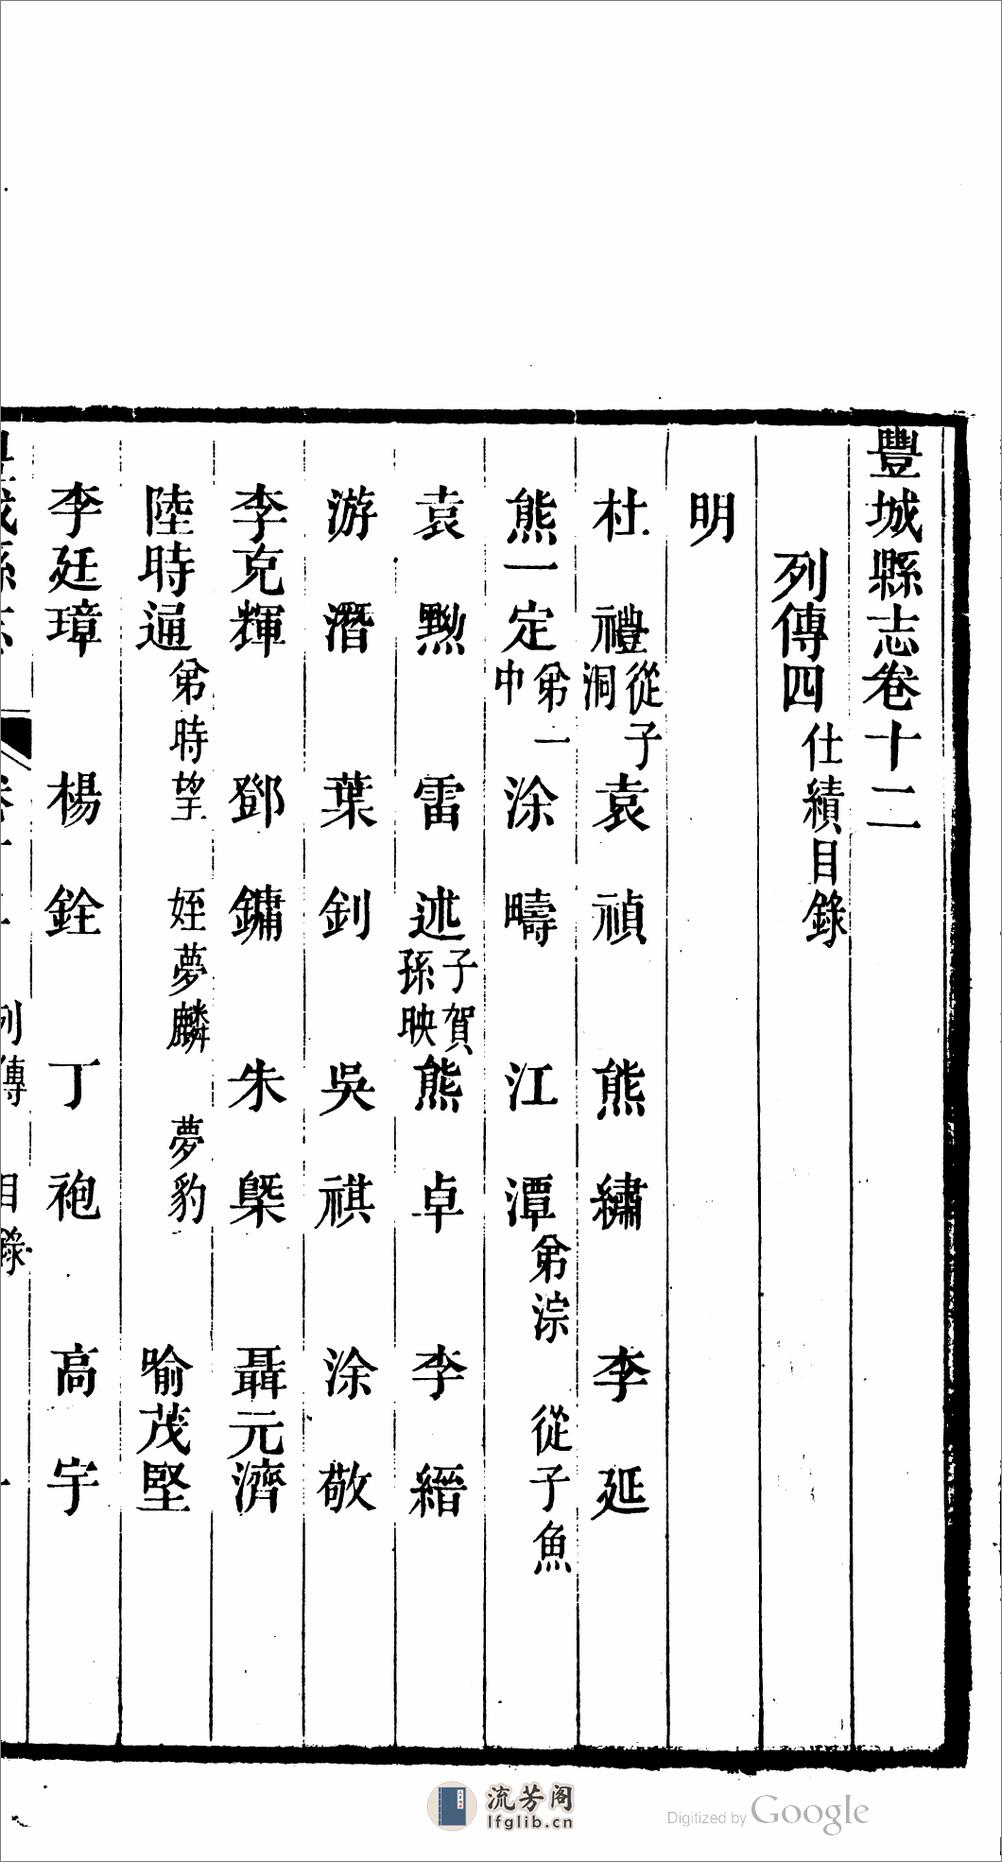 豐城縣志卷十二
列傳四 仕績目錄
明
杜禮 從子洞 袁禎 熊繡 李延
熊一定 弟一中 涂疇 江潭 弟淙 從子魚
袁黻 雷述 子賀 孫映 熊卓 李縉
游潛 葉釗 吳祺 涂敬
李克輝 鄧鏞 朱㮣 聶元濟
陸時通 弟時望 姪夢麟 夢豹 喻茂堅
李廷璋 楊銓 丁袍 高宇
豐城縣志 卷十二 列傳 目錄 一
流芳阁
lfglib.cn
Digitized by Google